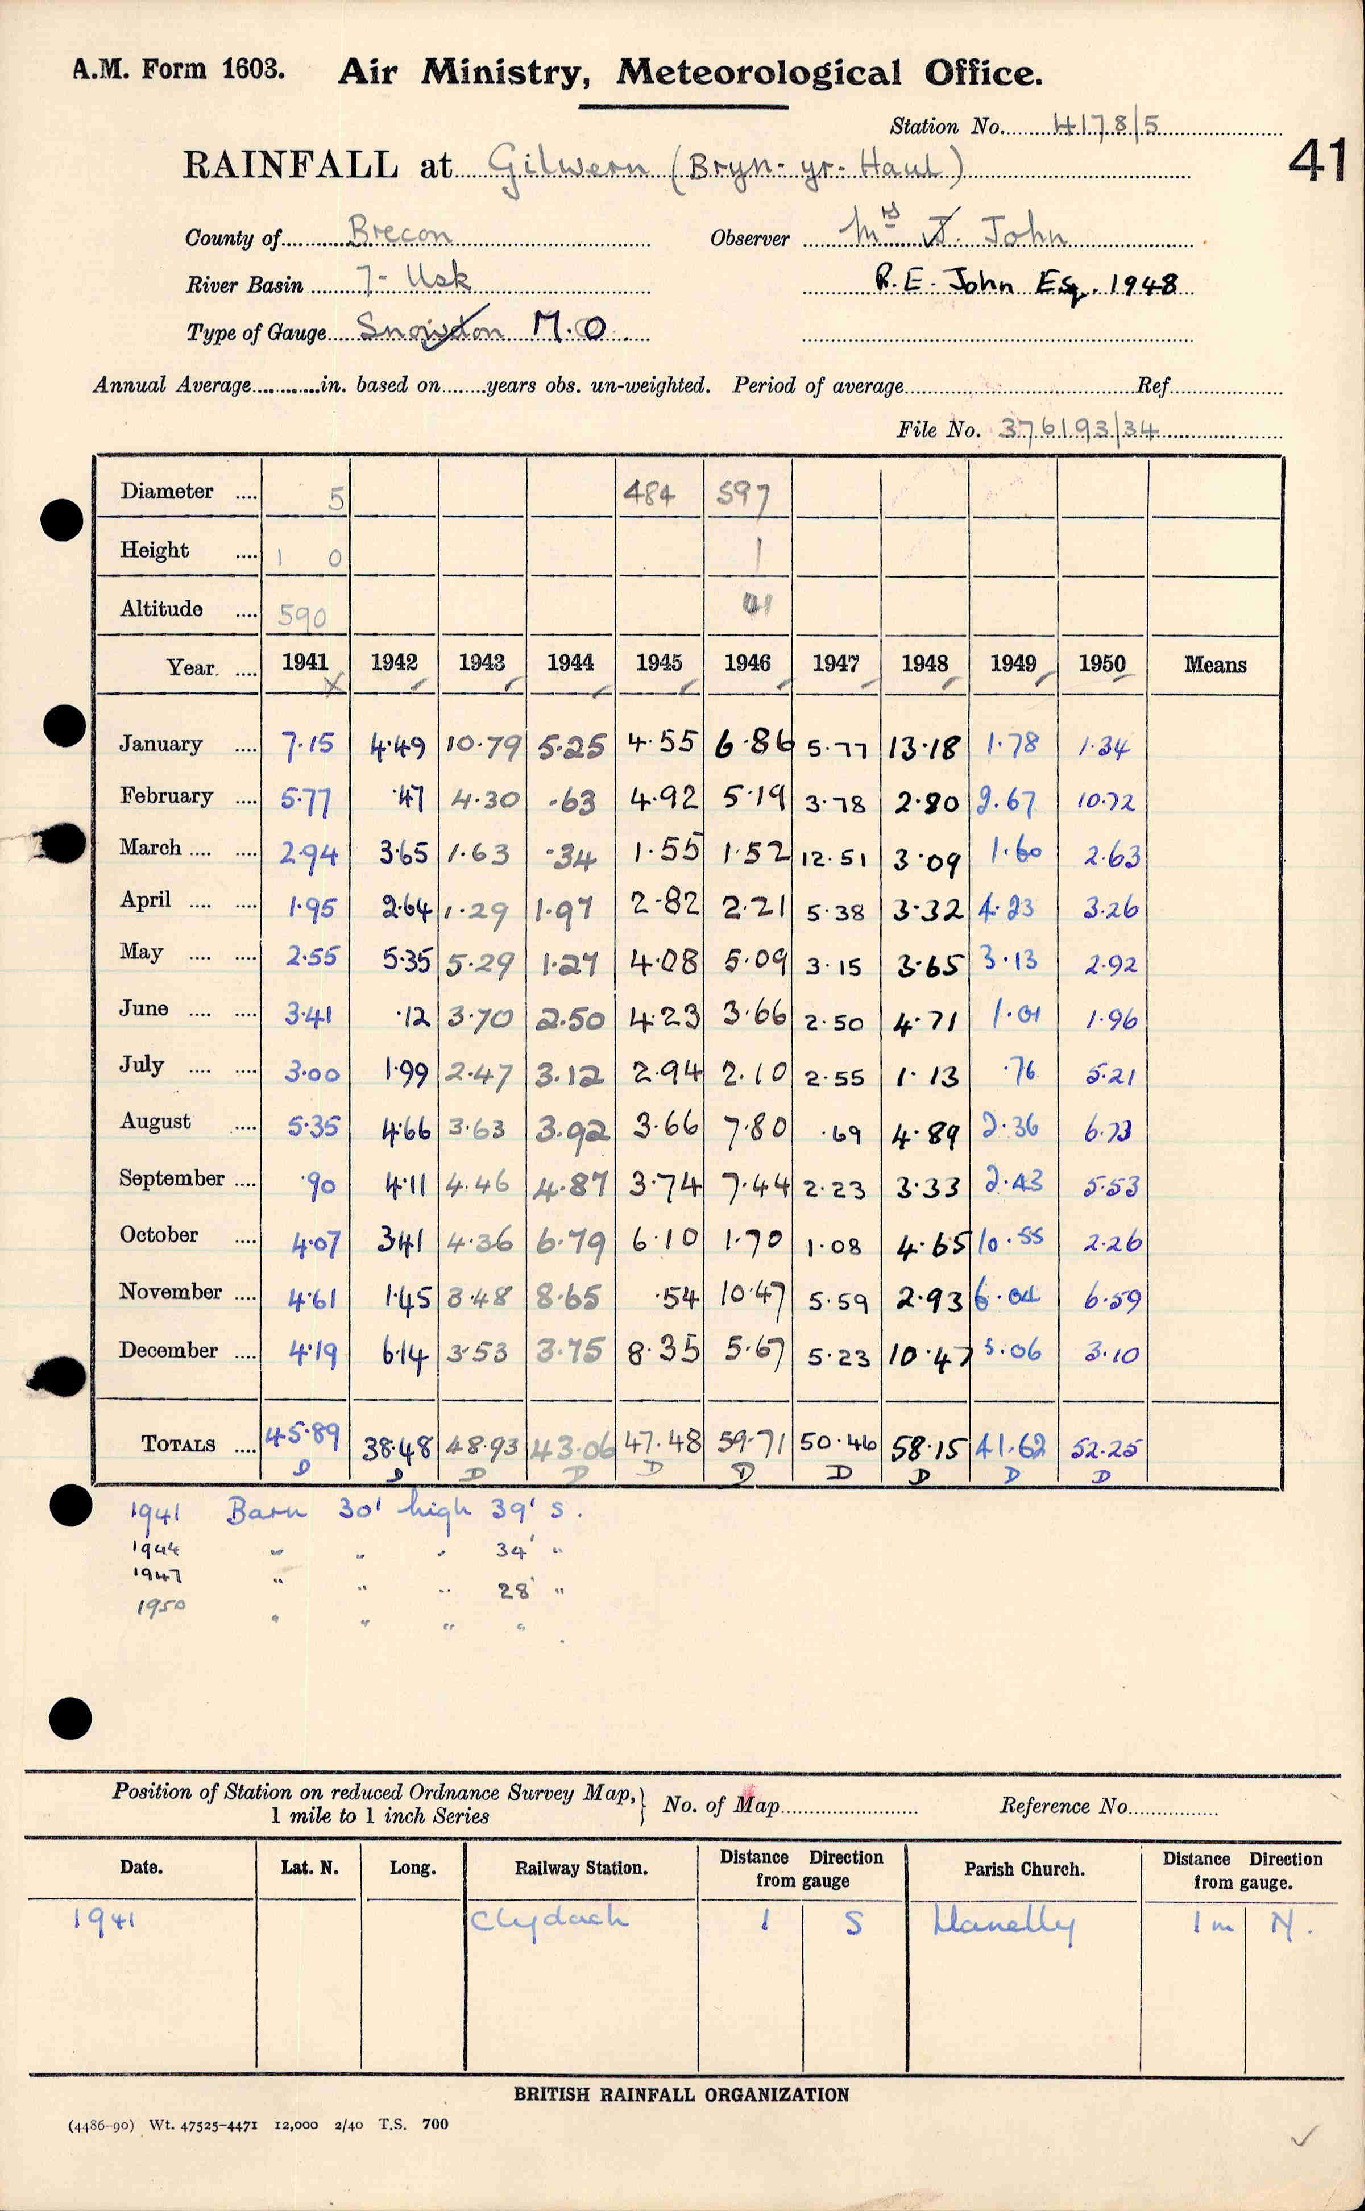 A.M. Form 1603. Air Ministry, Meteorological Office.
Station No. 4178/5
41
RAINFALL at Gilwern (Bryn-yr-Haul)
County of Brecon Observer Mrs J. John
River Basin 7- Usk R.E. John Esq. 1948
Type of Gauge Snowdon M.O.
Annual Average in. based on years obs. un-weighted. Period of average Ref.
File No. 376193/34
Diameter .... 5 484 597
Height .... 1 0 1
Altitude .... 590
Year .... 1941 1942 1943 1944 1945 1946 1947 1948 1949 1950 Means
January .... 7.15 4.49 10.79 5.25 4.55 6.86 5.77 13.18 1.78 1.34
February .... 5.77 .47 4.30 .63 4.92 5.19 3.78 2.80 2.67 10.72
March .... .... 2.94 3.65 1.63 .34 1.55 1.52 12.51 3.09 1.60 2.63
April .... .... 1.95 2.64 1.29 1.97 2.82 2.21 5.38 3.32 4.23 3.26
May .... .... 2.55 5.35 5.29 1.27 4.08 5.09 3.15 3.65 3.13 2.92
June .... .... 3.41 .12 3.70 2.50 4.23 3.66 2.50 4.71 1.01 1.96
July .... .... 3.00 1.99 2.47 3.12 2.94 2.10 2.55 1.13 .76 5.21
August .... 5.35 4.66 3.63 3.92 3.66 7.80 .69 4.89 2.36 6.73
September .... .90 4.11 4.46 4.87 3.74 7.44 2.23 3.33 2.43 5.53
October .... 4.07 3.41 4.36 6.79 6.10 1.70 1.08 4.65 10.55 2.26
November .... 4.61 1.45 3.48 8.65 .54 10.47 5.59 2.93 6.04 6.59
December .... 4.19 6.14 3.53 3.75 8.35 5.67 5.23 10.47 5.06 3.10
TOTALS .... 45.89 38.48 48.93 43.06 47.48 59.71 50.46 58.15 41.62 52.25
D D D D D D D D D D
1941 Barn 30' high 39' S.
1944 " " " 34' "
1947 " " " 28' "
1950 " " " "
Position of Station on reduced Ordnance Survey Map, 1 mile to 1 inch Series } No. of Map Reference No.
Date. Lat. N. Long. Railway Station. Distance Direction from gauge Parish Church. Distance Direction from gauge.
1941 Clydach 1 S Llanelly 1 m N.
BRITISH RAINFALL ORGANIZATION
(4486-90) Wt. 47525-4471 12,000 2/40 T.S. 700